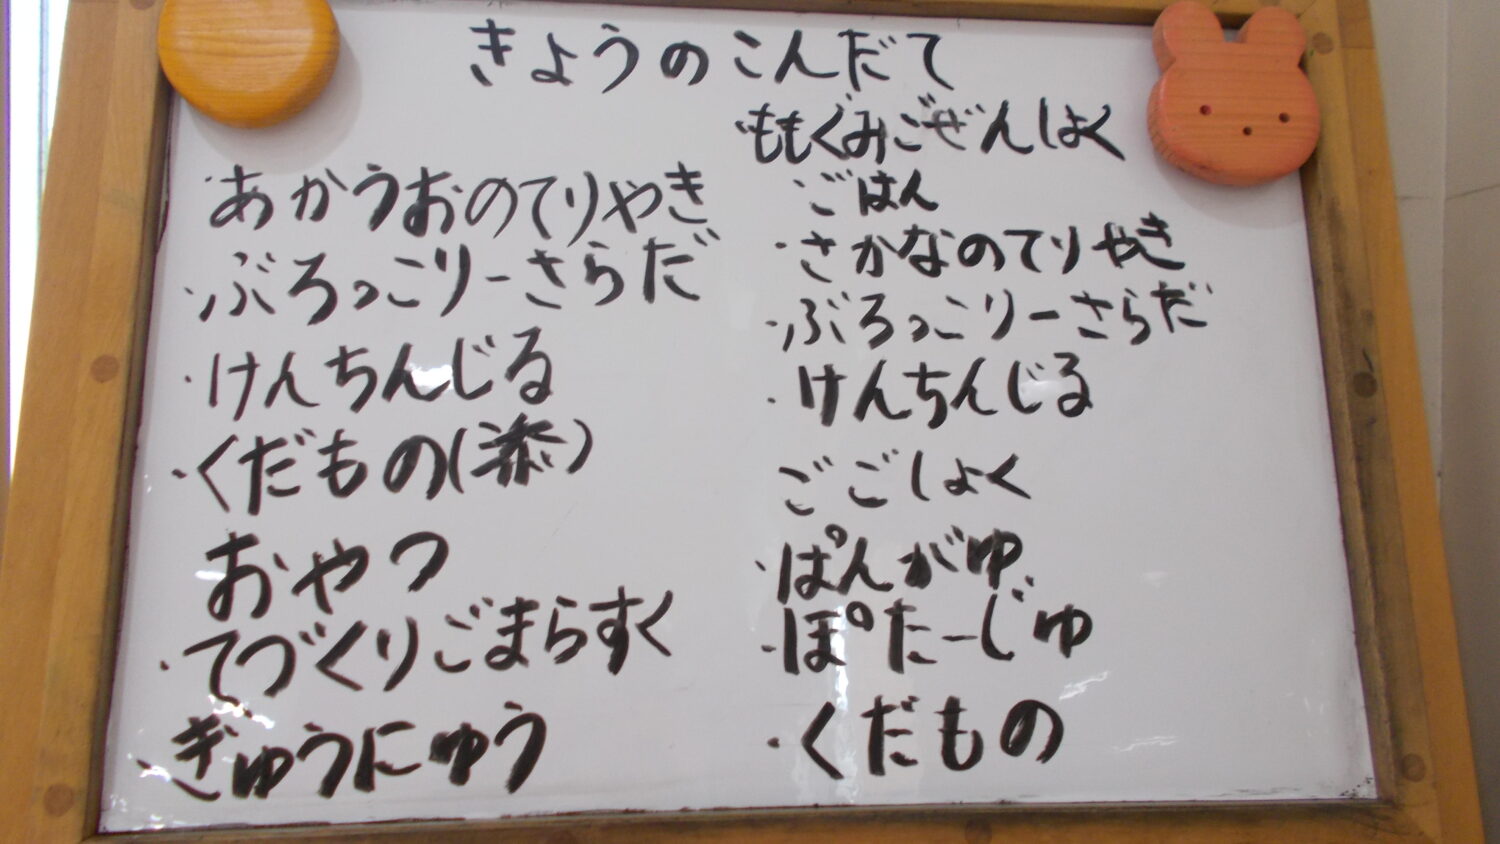 きょうのこんだて
・あかうおのてりやき
・ぶろっこりーさらだ
・けんちんじる
・くだもの(添)
おやつ
・てづくりごまらすく
・ぎゅうにゅう
・ももぐみごぜんしょく
ごはん
・さかなのてりやき
・ぶろっこりーさらだ
・けんちんじる
ごごしょく
・ぱんがゆ
・ぽたーじゅ
・くだもの